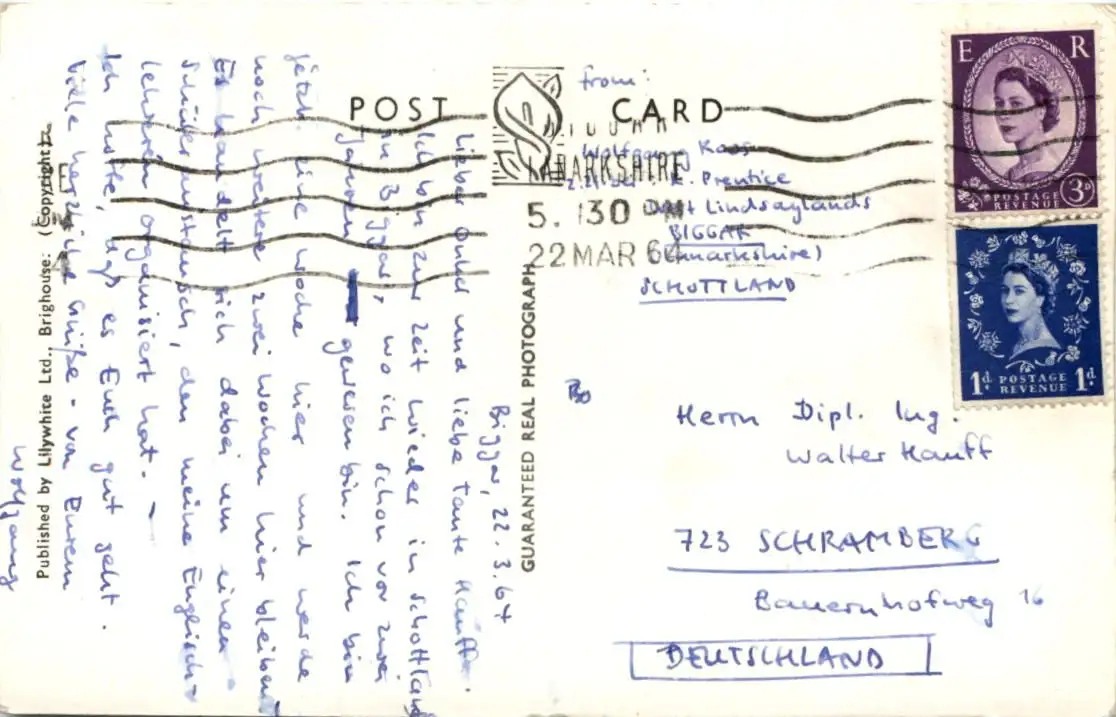 POST CARD
Published by Lilywhite Ltd., Brighouse: (Copyright)
GUARANTEED REAL PHOTOGRAPH
E R
POSTAGE
REVENUE
3D
1d POSTAGE 1d
REVENUE
LANARKSHIRE
5. 130 PM
22 MAR 64
from:
Wolfgang Koos
Prentice
Lindsaylands
BIGGAR
(Lanarkshire)
SCHOTTLAND
Herrn Dipl. Ing.
Walter Hauff
723 SCHRAMBERG
Bauernhofweg 16
DEUTSCHLAND
Biggar, 22.3.64
Lieber Onkel und liebe Tante Hauff.
Ich bin zur Zeit wieder in Schottland
in Biggar, wo ich schon vor zwei
Jahren gewesen bin. Ich bin
jetzt eine Woche hier und werde
noch weitere zwei Wochen hier bleiben.
Es handelt sich dabei um einen
Schüleraustausch, den meine Englisch-
lehrerin organisiert hat. –
Ich hoffe, daß es Euch gut geht.
Viele herzliche Grüße - von Eurem
Wolfgang